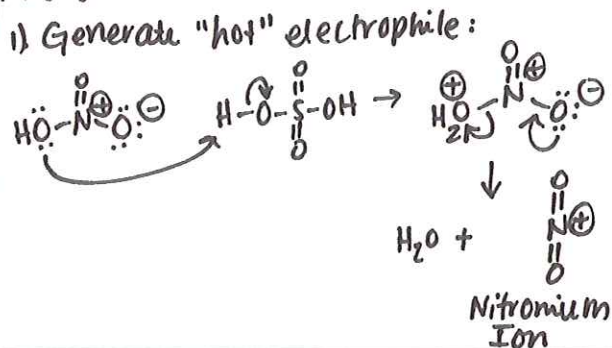 1) Generate "hot" electrophile:
O O O ⊕
HO-N⊕-O ⊖ H-O-S-OH → H2O-N⊕-O ⊖
O
↓
O
H2O + N⊕
O
Nitromium
Ion